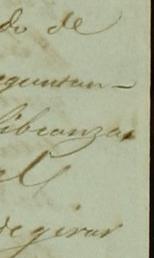 do de
eguntan-
libranza
el
de girar